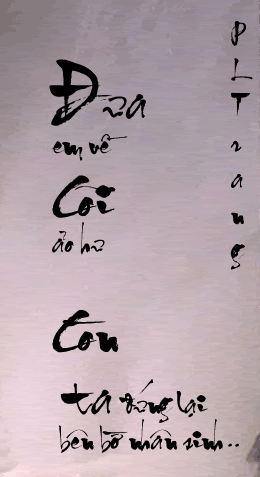 Đưa
em về
Cõi
ảo hư
Còn
ta đứng lại
bên bờ nhân sinh..
PLTrang